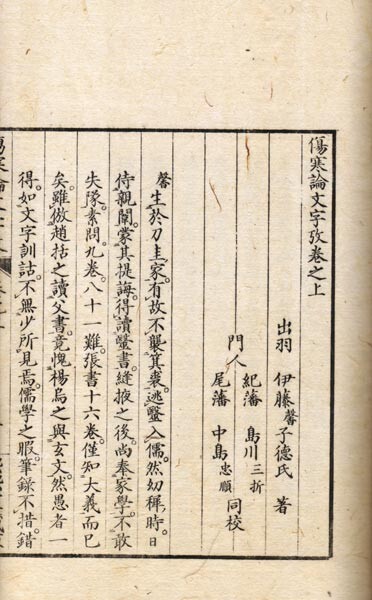 傷寒論文字攷卷之上
出羽 伊藤馨子德氏 著
門人 紀藩 島川三折
尾藩 中島忠順 同校
馨生於刀圭家。有故不襲箕裘。逃毉入儒。然幼穉時。日
侍親闈。蒙其提誨。得讀毉書。縫掖之後。尚奉家學。不敢
失隊。素問九卷。八十一難。張書十六卷。僅知大義而已
矣。雖倣趙括之讀父書。竟愧楊烏之與玄文。然愚者一
得。如文字訓詁。不無少所見焉。儒學之暇。筆錄不措。錯